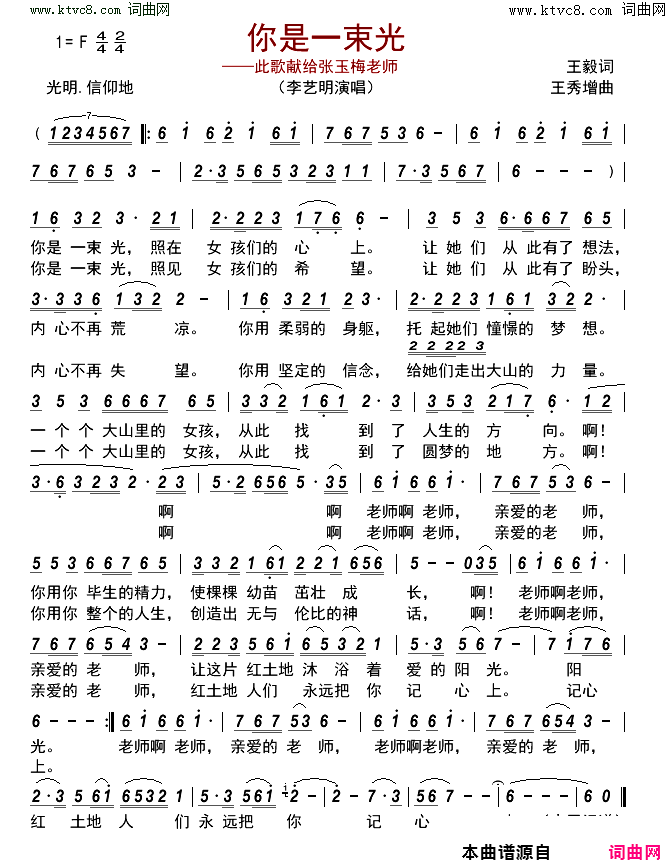 www.ktvc8.com 词曲网
www.ktvc8.com 词曲网
1=F 4/4 2/4
你是一束光
——此歌献给张玉梅老师
王毅词
光明.信仰地
（李艺明演唱）
王秀增曲
7
( 1234567 ‖: 6 1 62 1 61 | 767 53 6 - | 6 1 62 1 61 |
767 65 3 - | 2·3 565 323 11 | 7·3 567 | 6 - - - ) |
16 32 3· 21 | 2·223 176 6 - | 3 53 6·767 65 |
你是 一束 光， 照在 女 孩们的 心 上。 让 她们 从 此有了 想法，
你是 一束 光， 照见 女 孩们的 希 望。 让 她们 从 此有了 盼头，
3·336 132 2 - | 16 321 23 2· | 2·223 161 32 2 |
内 心不再 荒 凉。 你用 柔弱的 身躯， 托 起她们 憧憬的 梦 想。
2 2 22 3
内 心不再 失 望。 你用 坚定的 信念， 给她们走出大山的 力 量。
3 53 6667 65 | 3·3 161 2·3 | 221 217 6· 12 |
一 个个 大山里的 女孩， 从此 找 到 了 人生的 方 向。 啊！
一 个个 大山里的 女孩， 从此 找 到 了 圆梦的 地 方。 啊！
3·6 3232 3 - | 5·2 656 53 - | 61 661 767 536 - |
啊 啊 老师啊 老师， 亲爱的 老 师，
啊 啊 老师啊 老师， 亲爱的 老 师，
553 667765 | 332 161 221 656 | 5 - - 035 | 61 661 |
你用你 毕生的精力， 使棵棵 幼苗 茁壮 成 长， 啊！ 老师啊老师，
你用你 整个的人生， 创造出 无与 伦比的神 话， 啊！ 老师啊老师，
767 654 3 - | 223 561 65321 | 5·3 56 7 - | 7 176 |
亲爱的 老 师， 让这片 红土地 沐 浴 着 爱 的 阳 光。 阳
亲爱的 老 师， 红土地 人们 永远把 你 记 心 上。 记心
6 - - - :‖ 61 661 | 767 53 6 | 61 661 | 767 654 3 |
光。 老师啊 老师， 亲爱的 老 师， 老师啊老师， 亲爱的 老 师，
上。
2·3 561 6532 1 | 1·2 561 2 - | 2 - 7·3 | 567 - - | 6 - - - | 6 - - 0 ‖
红 土地 人 们 永 远把 你 记 心
本曲谱源自
词曲网